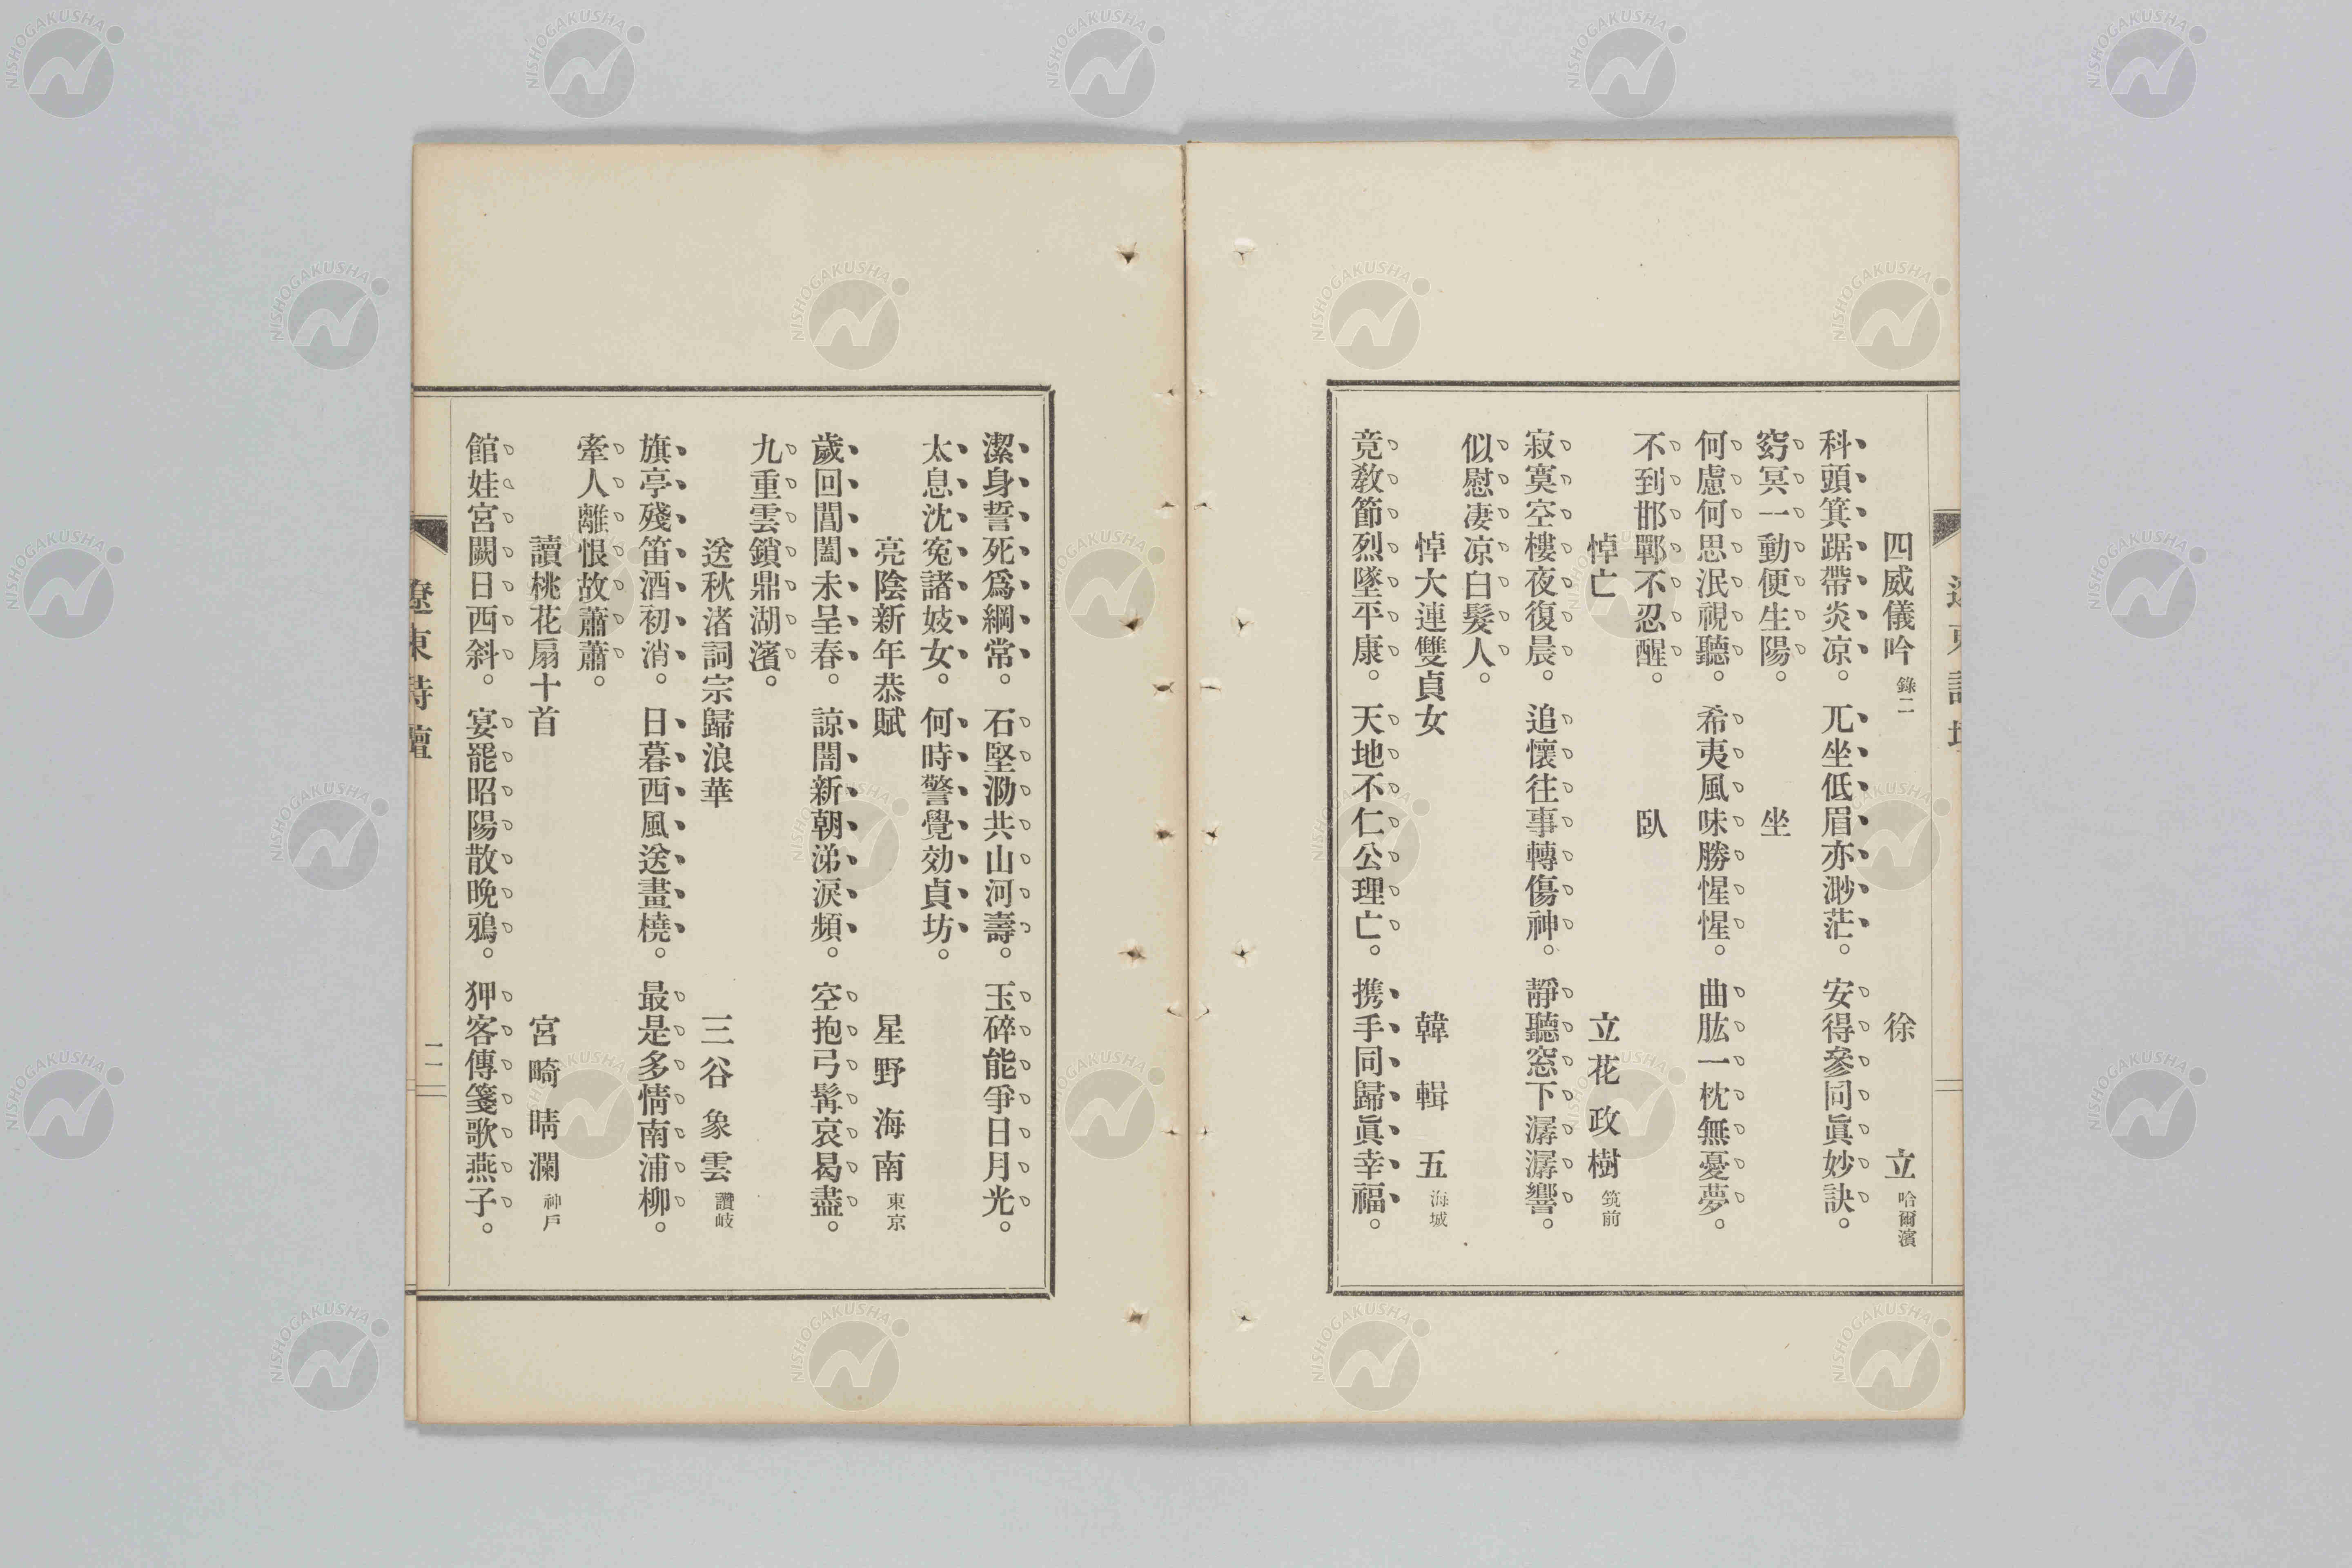 四威儀吟 錄二 徐立 哈爾濱
科頭箕踞帶炎凉。兀坐低眉亦渺茫。安得參同眞妙訣。
窈冥一動便生陽。 坐
何慮何思泯視聽。希夷風味勝惺惺。曲肱一枕無憂夢。
不到邯鄲不忍醒。 臥
悼亡 立花政樹 筑前
寂寞空樓夜復晨。追懷往事轉傷神。靜聽窓下潺潺響。
似慰凄凉白髮人。
悼大連雙貞女 韓輯五 海城
竟敎節烈墜平康。天地不仁公理亡。携手同歸眞幸福。
潔身誓死爲綱常。石堅泐共山河壽。玉碎能爭日月光。
太息沈寃諸妓女。何時警覺効貞坊。
亮陰新年恭賦 星野海南 東京
歲回閶闔未呈春。諒闇新朝涕淚頻。空抱弓髯哀曷盡。
九重雲鎖鼎湖濱。
送秋渚詞宗歸浪華 三谷象雲 讚岐
旗亭殘笛酒初消。日暮西風送畫橈。最是多情南浦柳。
牽人離恨故蕭蕭。
讀桃花扇十首 宮崎晴瀾 神戶
館娃宮闕日西斜。宴罷昭陽散晚鴉。狎客傳箋歌燕子。
遼東詩壇 二一
NISHOGAKUSHA